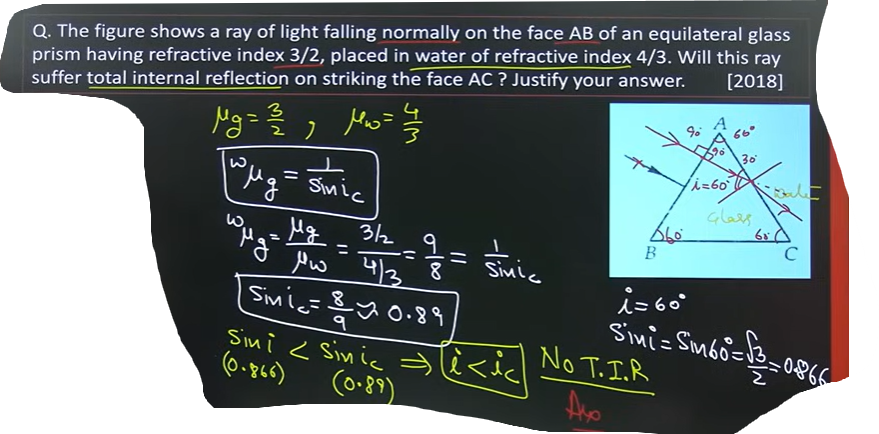 Q. The figure shows a ray of light falling normally on the face AB of an equilateral glass
prism having refractive index 3/2, placed in water of refractive index 4/3. Will this ray
suffer total internal reflection on striking the face AC ? Justify your answer. [2018]
μg = 3/2 , μw = 4/3
ʷμg = 1/sin ic
ʷμg = μg/μw = (3/2)/(4/3) = 9/8 = 1/sin ic
Sin ic = 8/9 ≈ 0.89
Sin i < Sin ic ⇒ i < ic No T.I.R
(0.866) (0.89)
Ans
A
90° 60°
90° 30°
i=60°
Glass
60° 60°
B C
i = 60°
Sin i = Sin 60° = √3/2 = 0.866